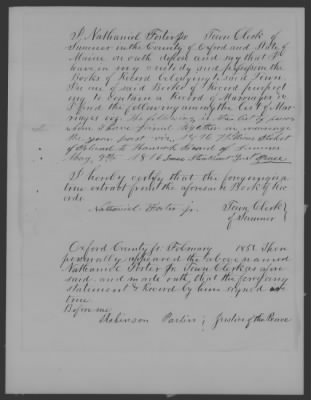 I, Nathaniel Foster jr Town Clerk of
Sumner in the County of Oxford and State of
Maine on oath depose and say that I
have in my custody and possession the
Books of Record belonging to said Town.
In one of said Books of Record purport
ing to contain a Record of Marriages &c
I find the following among the List of Mar
riages viz. The following is the List of persons
whom I have joined together in marriage
the year past viz, 1816
of to Hannah of Sumner
May 9th 1816 Just Peace
I hereby certify that the foregoing is a
true extract from the aforesaid Book of Re
cords
Nathaniel Foster jr. Town Clerk
of Sumner
Oxford County ss. February 1851 Then
personally appeared the above named
Nathaniel Foster Jr Town Clerk as afore
said and made oath, that the foregoing
statement & Record by him signed is
true
Before me
Justice of the Peace